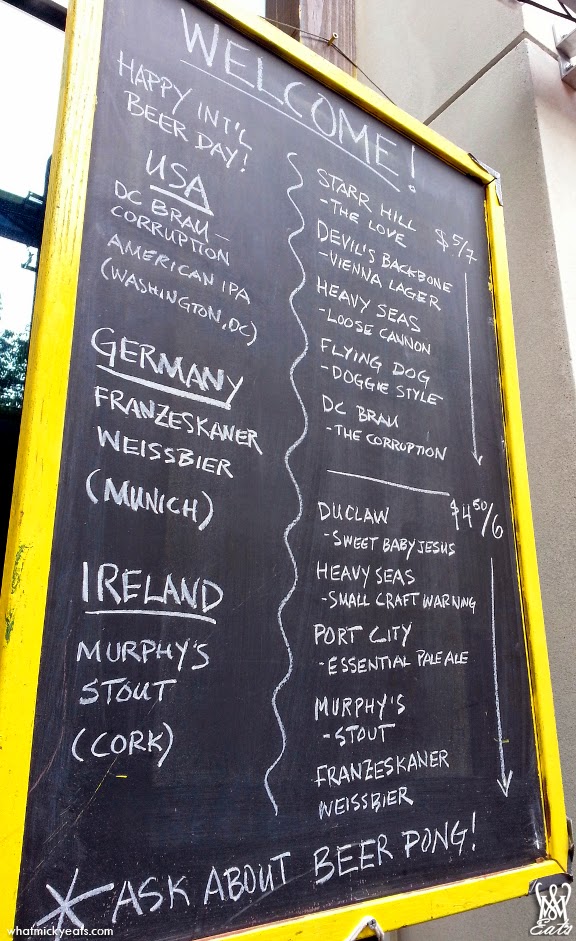 WELCOME!
HAPPY INT'L
BEER DAY!
USA
DC BRAU -
CORRUPTION
AMERICAN IPA
(WASHINGTON, DC)
GERMANY
FRANZESKANER
WEISSBIER
(MUNICH)
IRELAND
MURPHY'S
STOUT
(CORK)
STARR HILL $5/7
- THE LOVE
DEVIL'S BACKBONE
- VIENNA LAGER
HEAVY SEAS
- LOOSE CANNON
FLYING DOG
- DOGGIE STYLE
DC BRAU
- THE CORRUPTION
DUCLAW $4 50/6
- SWEET BABY JESUS
HEAVY SEAS
- SMALL CRAFT WARNING
PORT CITY
- ESSENTIAL PALE ALE
MURPHY'S
- STOUT
FRANZESKANER
WEISSBIER
* ASK ABOUT BEER PONG!
whatmickyeats.com
Eats